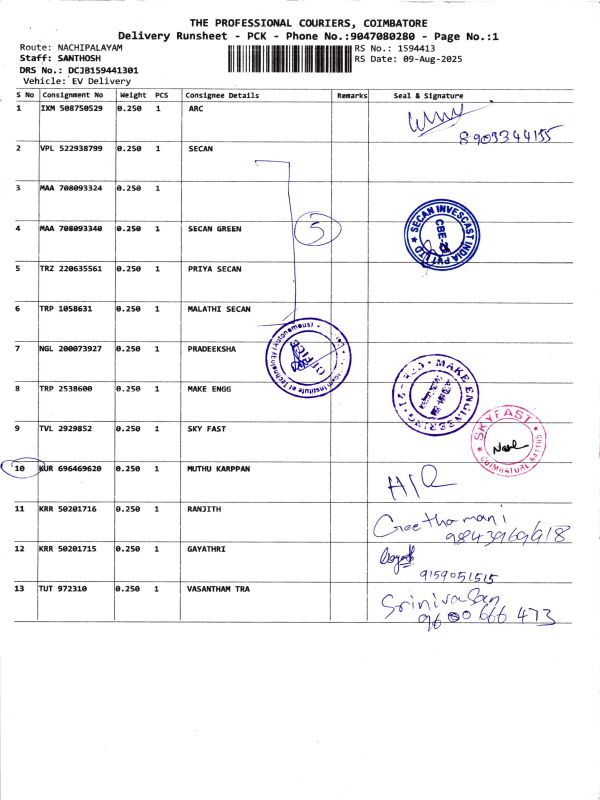 THE PROFESSIONAL COURIERS, COIMBATORE
Delivery Runsheet - PCK - Phone No.:9047080280 - Page No.:1
Route: NACHIPALAYAM RS No.: 1594413
Staff: SANTHOSH RS Date: 09-Aug-2025
DRS No.: DCJB159441301
Vehicle: EV Delivery
S No Consignment No Weight PCS Consignee Details Remarks Seal & Signature
1 IXM 508750529 0.250 1 ARC
8903344155
2 VPL 522938799 0.250 1 SECAN
3 MAA 708093324 0.250 1
4 MAA 708093340 0.250 1 SECAN GREEN 5 SECAN INVESCAST INDIA PVT LTD CBE
5 TRZ 220635561 0.250 1 PRIYA SECAN
6 TRP 1058631 0.250 1 MALATHI SECAN
7 NGL 200073927 0.250 1 PRADEEKSHA Institute of Technology (Autonomous)
8 TRP 2538600 0.250 1 MAKE ENGG MAKE ENGINEERING
9 TVL 2929852 0.250 1 SKY FAST SKYFAST COIMBATORE
10 KUR 696469620 0.250 1 MUTHU KARPPAN H/Q
11 KRR 50201716 0.250 1 RANJITH Geethamani
9843969918
12 KRR 50201715 0.250 1 GAYATHRI
9159051515
13 TUT 972310 0.250 1 VASANTHAM TRA Srinivasan
9600666 473